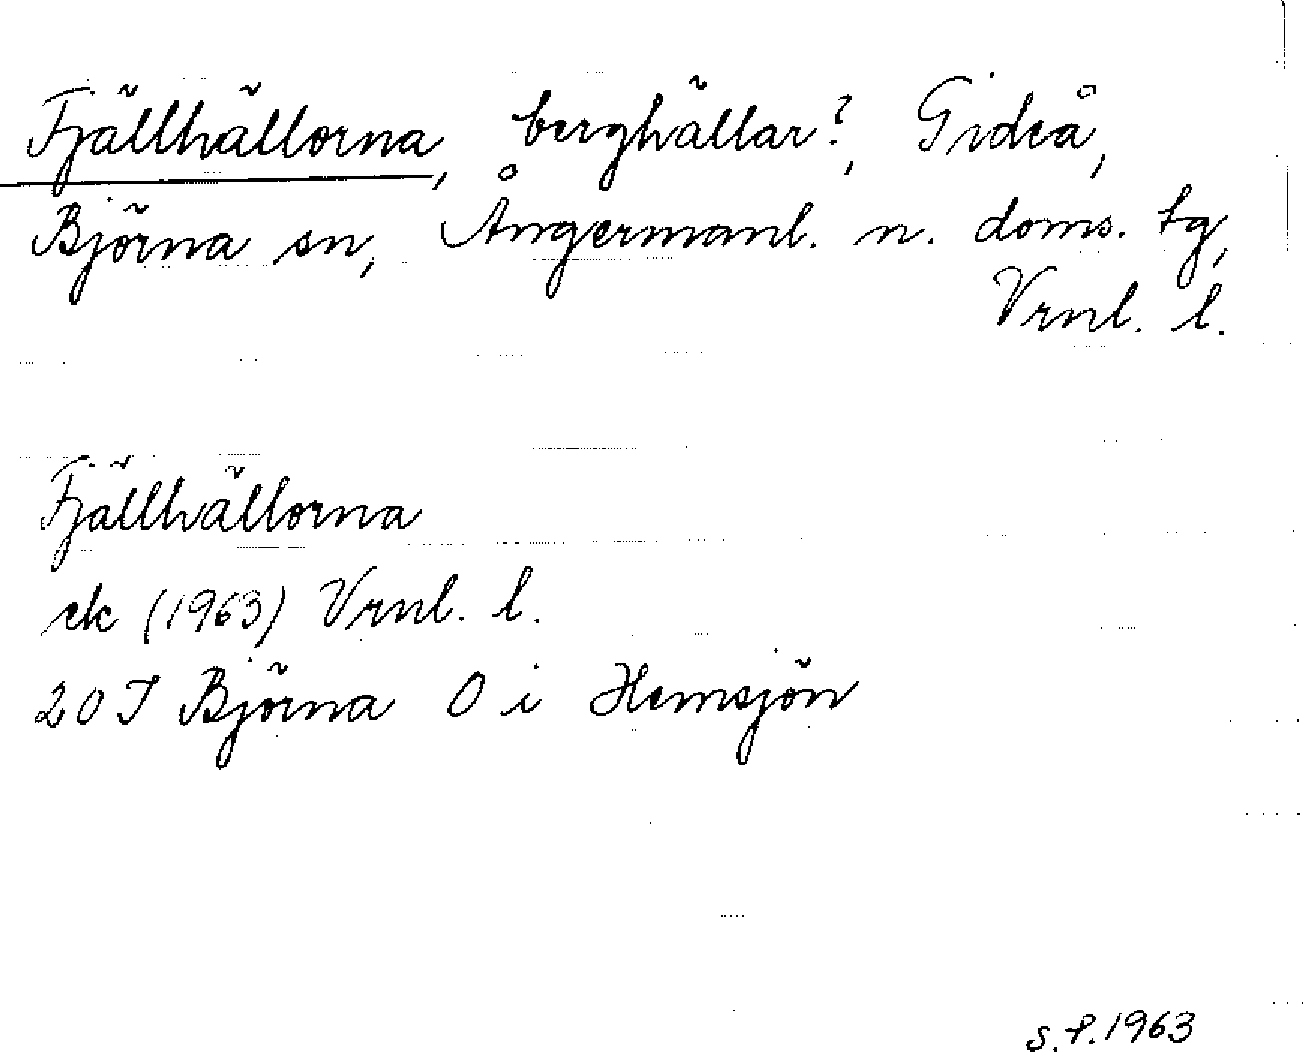 Fjällhällorna, berghällar?, Gideå,
Björna sn, Ångermanl. n. doms. tg,
Vrnl. l.
Fjällhällorna
ek (1963) Vrnl. l.
20 I Björna O i Hemsjön
S.P. 1963